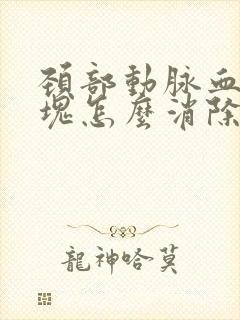 頸部動脉血
塊怎麽消除
龍神哈莫